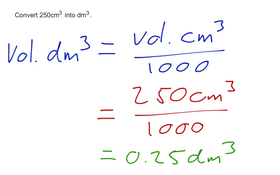 Convert 250cm³ into dm³.
Vol. dm³ = vol. cm³ / 1000
= 250cm³ / 1000
= 0.25dm³